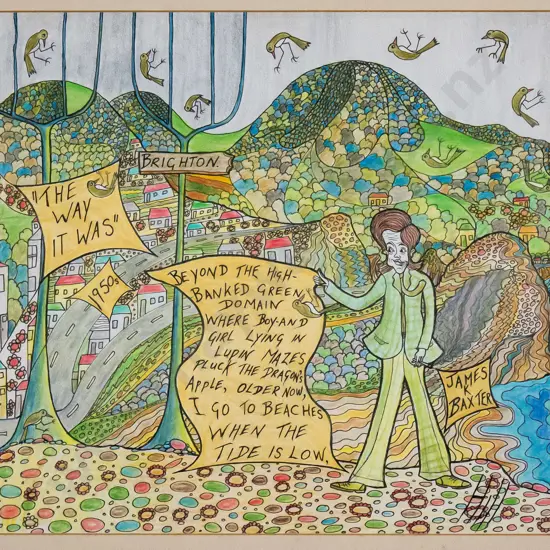 BRIGHTON
"THE
WAY
IT WAS"
1950s
BEYOND THE HIGH-
BANKED GREEN
DOMAIN
WHERE BOY-AND
GIRL LYING IN
LUPIN MAZES
PLUCK THE DRAGON'S
APPLE, OLDER NOW,
I GO TO BEACHES
WHEN THE
TIDE IS LOW.
JAMES
K
BAXTER